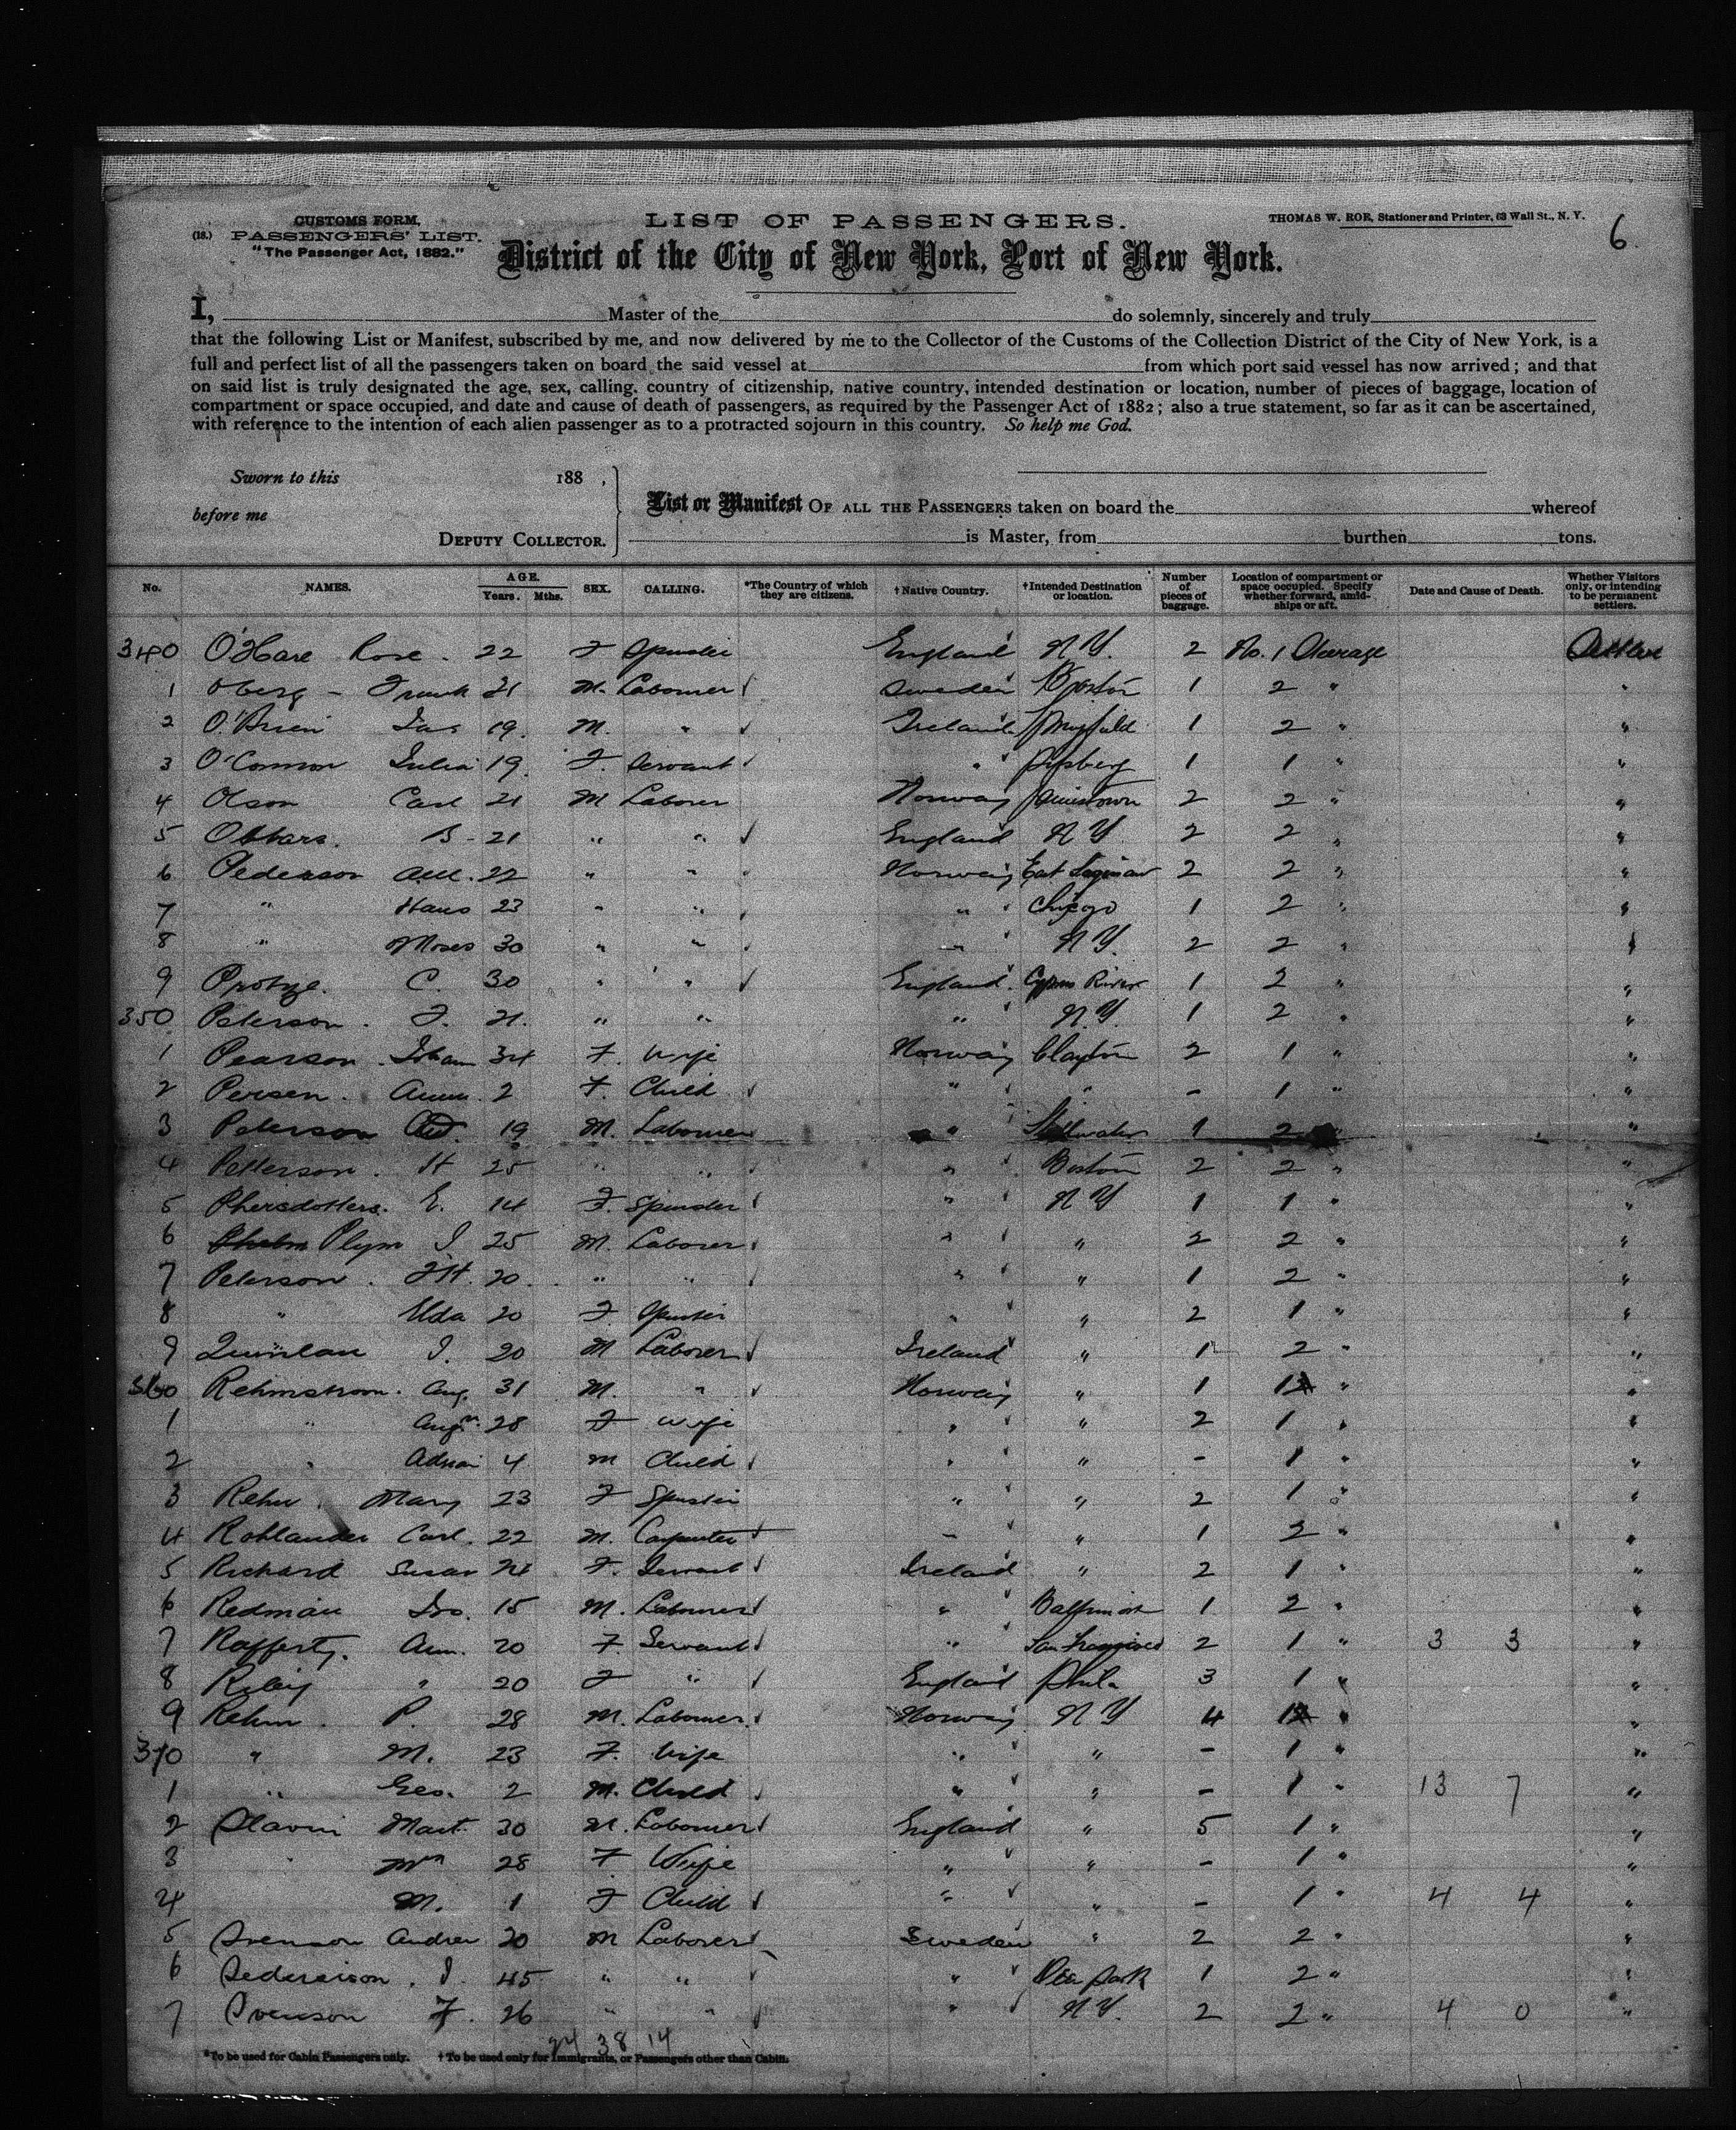 CUSTOMS FORM.
(18.) PASSENGERS' LIST.
"The Passenger Act, 1882."
LIST OF PASSENGERS.
THOMAS W. ROE, Stationer and Printer, 63 Wall St., N. Y.
6
District of the City of New York, Port of New York.
I, Master of the do solemnly, sincerely and truly
that the following List or Manifest, subscribed by me, and now delivered by me to the Collector of the Customs of the Collection District of the City of New York, is a
full and perfect list of all the passengers taken on board the said vessel at from which port said vessel has now arrived; and that
on said list is truly designated the age, sex, calling, country of citizenship, native country, intended destination or location, number of pieces of baggage, location of
compartment or space occupied, and date and cause of death of passengers, as required by the Passenger Act of 1882; also a true statement, so far as it can be ascertained,
with reference to the intention of each alien passenger as to a protracted sojourn in this country. So help me God.
Sworn to this 188 ,
before me
DEPUTY COLLECTOR.
List or Manifest OF ALL THE PASSENGERS taken on board the whereof
is Master, from burthen tons.
No. NAMES. AGE. Years. Mths. SEX. CALLING. *The Country of which they are citizens. †Native Country. †Intended Destination or location. Number of pieces of baggage. Location of compartment or space occupied. Specify whether forward, amidships or aft. Date and Cause of Death. Whether Visitors only, or intending to be permanent settlers.
340 O'Hare Rose. 22 F Spinster England N Y. 2 No. 1 Steerage Settler
1 Oberg - Frank 21 M. Labourer Sweden Boston 1 2 " "
2 O'Brien Jas 19. M. " Ireland 1 2 " "
3 O'Connor Julia 19. F. Servant " 1 1 " "
4 Olson Carl 21 M Laborer Norway Jamestown 2 2 " "
5 21 " " England N Y. 2 2 " "
6 Pederson 22 " " Norway East Saginaw 2 2 " "
7 " Hans 23 " " " Chicago 1 2 " "
8 " Moses 30 " " " N Y. 2 2 "
9 C. 30 " " England. 1 2 " "
350 Peterson. F. 21. " " " N. Y. 1 2 " "
1 Pearson 34 F. Wife Norway Clayton 2 1 " "
2 Persen. 2 F. Child " " - 1 " "
3 Peterson 19 M. Labourer " Stillwater 1 2 " "
4 Petterson. H 25 " " " Boston 2 2 " "
5 Phersdotters. E. 14 F. Spinster " N Y 1 1 " "
6 Plym J 25 M. Laborer " " 2 2 " "
7 Peterson. 20. " " " " 1 2 " "
8 " Elda 20 F. Spinster " " 2 1 " "
9 Quinlan J. 20 M Laborer Ireland " 1 2 " "
360 Rehmstrom. Aug. 31 M. " Norway " 1 1 " "
1 " 28 F Wife " " 2 1 " "
2 " 4 M Child " " - 1 " "
3 Rehn. Mary 23 F Spinster " " 2 1 " "
4 Rohlander Carl. 22 M. Carpenter " " 1 2 " "
5 Richard Susan F. Servant Ireland " 2 1 " "
6 Redman Jno. 15 M. Labourer " Baltimore 1 2 " "
7 Rafferty. Ann. 20 F. Servant " San Francisco 2 1 " 3 3 "
8 Riley " 20 F " England Phila 3 1 " "
9 Rehn. P. 28 M. Labourer. Norway N Y 4 1 " "
370 " M. 23 F. Wife " " - 1 " "
1 " Geo. 2 M. Child " " - 1 " 13 7 "
2 Slavin Mart. 30 M. Labourer England " 5 1 " "
3 " 28 F Wife " " - 1 " "
4 M. 1 F Child " " - 1 " 4 4 "
5 Svenson Andrew 20 M Laborer Sweden " 2 2 " "
6 J. 45 " " " Deer Park 1 2 " "
7 Svenson F. 26 " " " N Y. 2 2 " 4 0 "
24 38 14
*To be used for Cabin Passengers only. †To be used only for Immigrants, or Passengers other than Cabin.